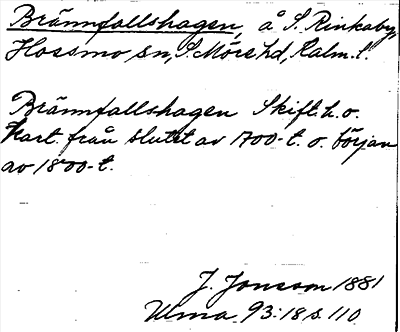 Brännfallshagen, å S. Rinkaby,
Hossmo sn, S. Möre hd, Kalm. l.
Brännfallshagen Skift.h. o.
Kart. från slutet av 1700-t. o. början
av 1800-t.
J. Jonsson 1881
Ulma 93:18 s. 110